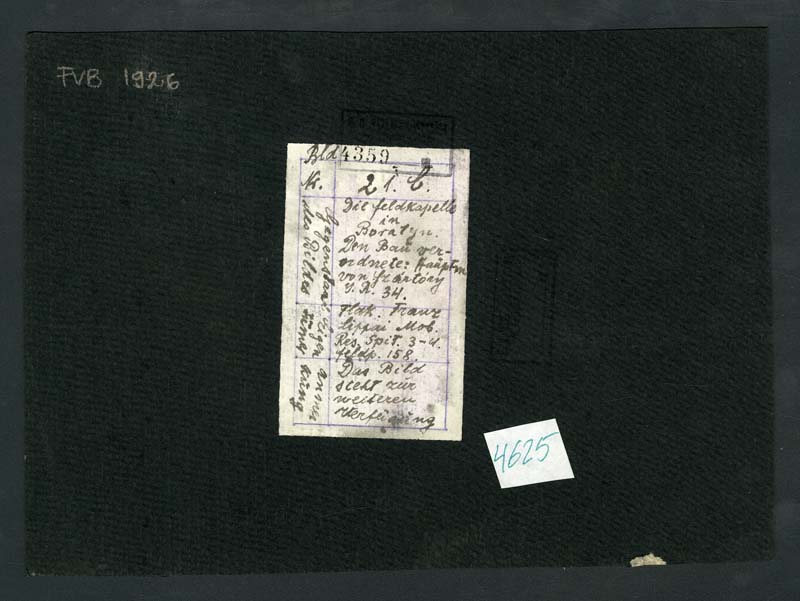 FVB 1926
Bld 4359
Nr. 21. C.
Gegenstand
des Bildes
Die Feldkapelle
in
Boratyn.
Den Bau ver-
ordnete: Hauptm
von
I. R. 34.
Eigen
Franz
Lippai Mob.
Res. Spit. 3-4.
Feldp. 158.
Anmer
kung
Das Bild
steht zur
weiteren
Verfügung
4625